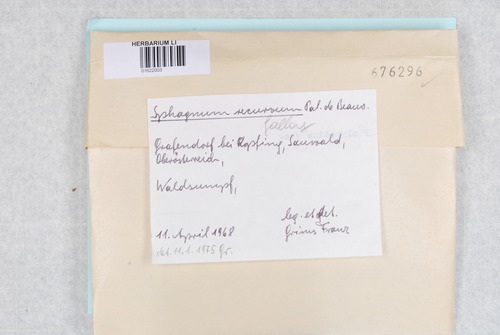 HERBARIUM LI
01622003
676296
Sphagnum recurvum Pal. de Beauv.
fallax
Grafendorf bei Kopfing, Sauwald,
Oberösterreich,
Waldsumpf,
leg. et det.
11. April 1968 Grims Franz
det. 11.1.1975 Gr.